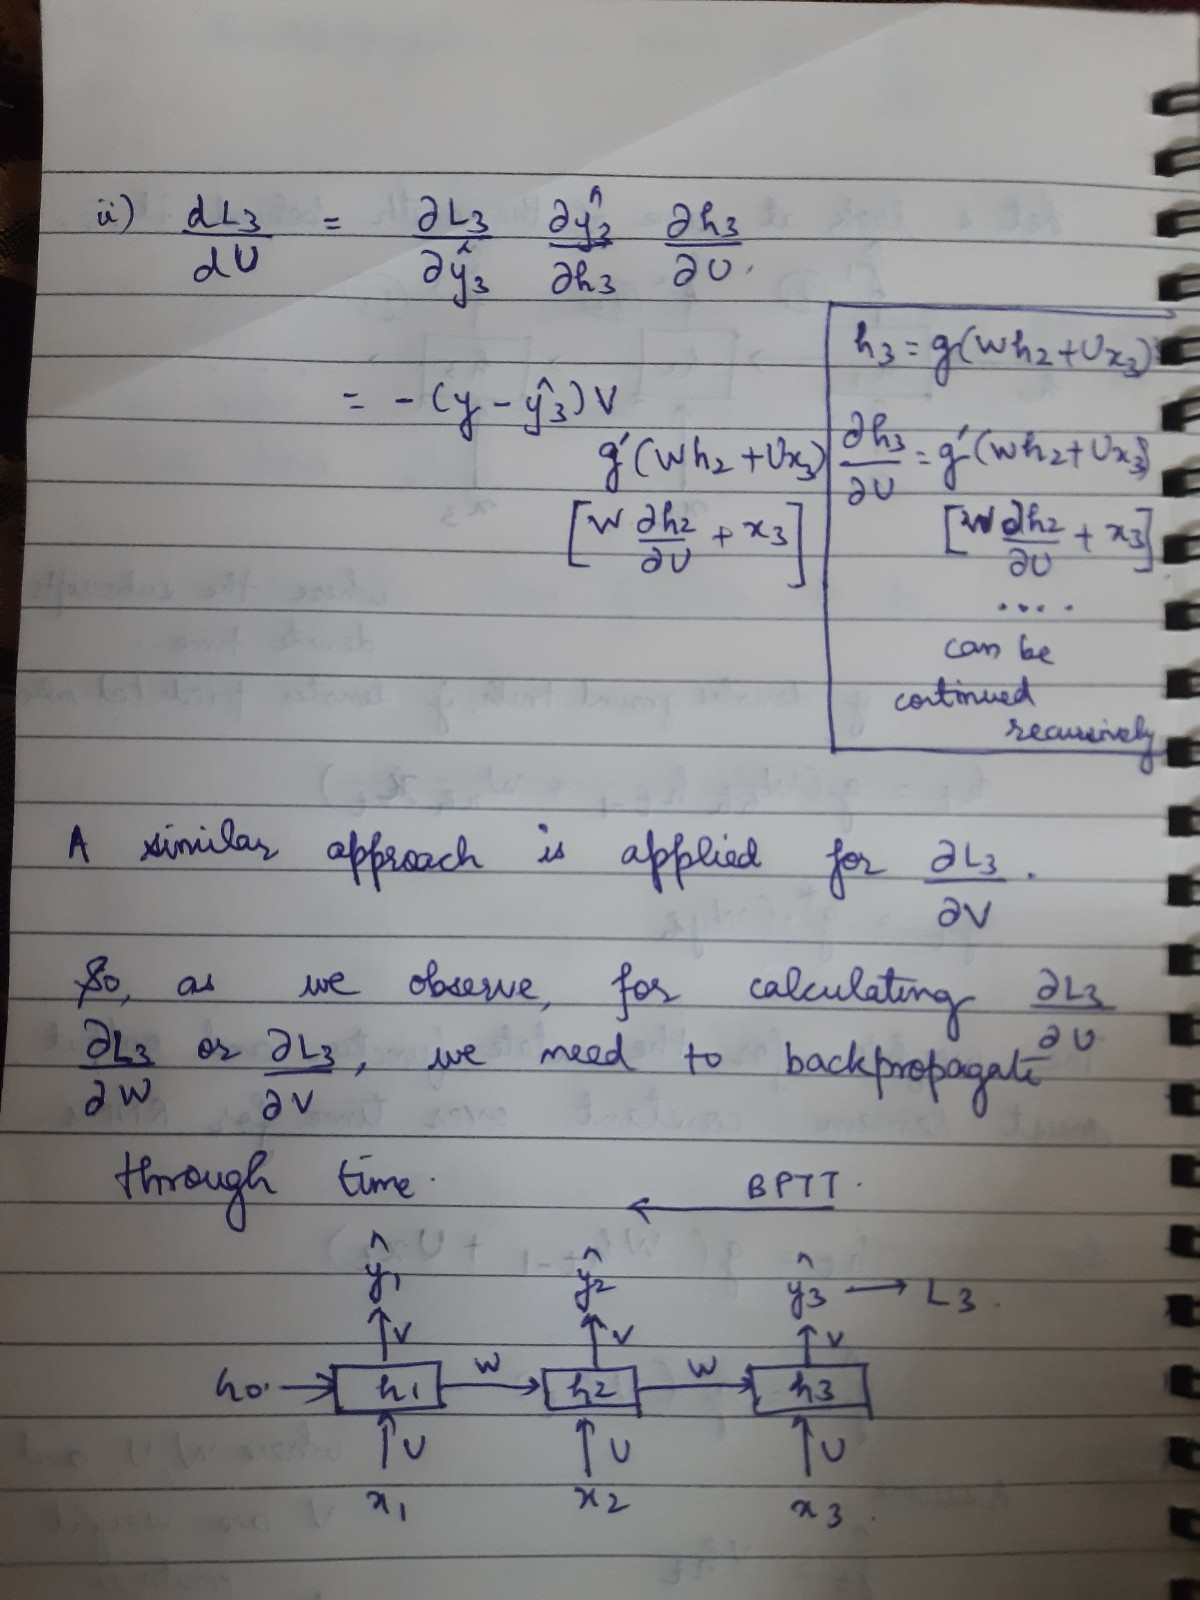 ii) dL3/dU = ∂L3/∂ŷ3 ∂ŷ3/∂h3 ∂h3/∂U.
= -(y - ŷ3) V
g'(Wh2 + Ux3)
[W ∂h2/∂U + x3]
h3 = g(Wh2 + Ux3)
∂h3/∂U = g'(Wh2 + Ux3)
[W ∂h2/∂U + x3]
....
can be
continued
recursively
A similar approach is applied for ∂L3/∂V.
So, as we observe, for calculating ∂L3/∂U
∂L3/∂W or ∂L3/∂V, we need to backpropagate
through time.
BPTT.
ŷ1 ŷ2 ŷ3 → L3.
V V V
h0. h1 W h2 W h3
U U U
x1 x2 x3.